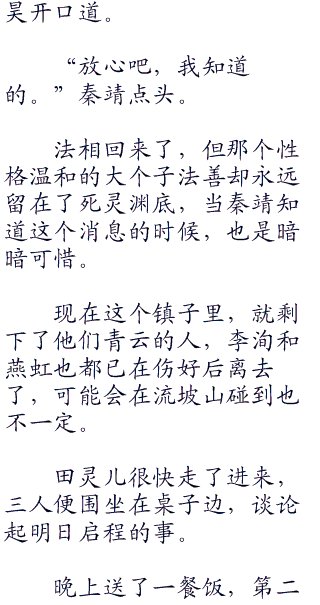 昊开口道。
“放心吧，我知道
的。”秦靖点头。
法相回来了，但那个性
格温和的大个子法善却永远
留在了死灵渊底，当秦靖知
道这个消息的时候，也是暗
暗可惜。
现在这个镇子里，就剩
下了他们青云的人，李洵和
燕虹也都已在伤好后离去
了，可能会在流坡山碰到也
不一定。
田灵儿很快走了进来，
三人便围坐在桌子边，谈论
起明日启程的事。
晚上送了一餐饭，第二